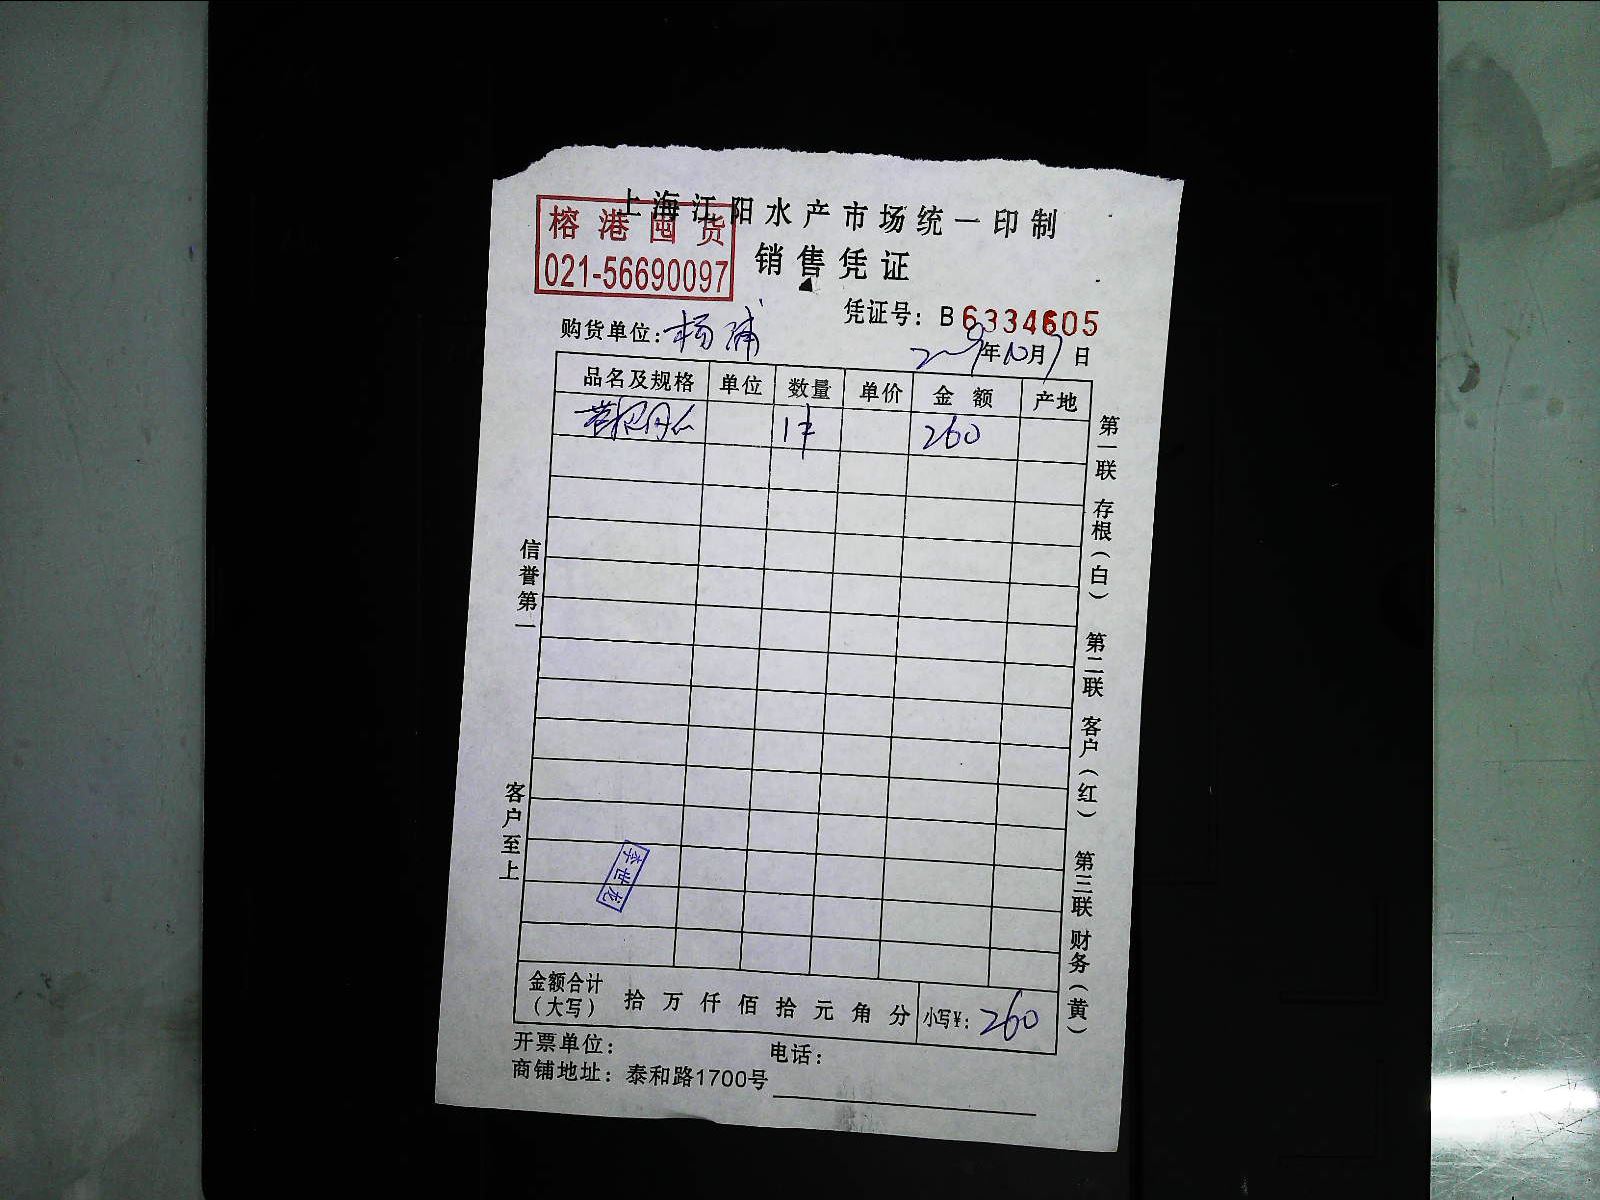 上海江阳水产市场统一印制
榕港囤货
021-56690097
销售凭证
凭证号：B6334605
购货单位：杨浦
2009年10月7日
品名及规格 单位 数量 单价 金额 产地
1件 260
信誉第一
客户至上
第一联 存根（白） 第二联 客户（红） 第三联 财务（黄）
李世龙
金额合计（大写） 拾 万 仟 佰 拾 元 角 分 小写¥：260
开票单位： 电话：
商铺地址：泰和路1700号